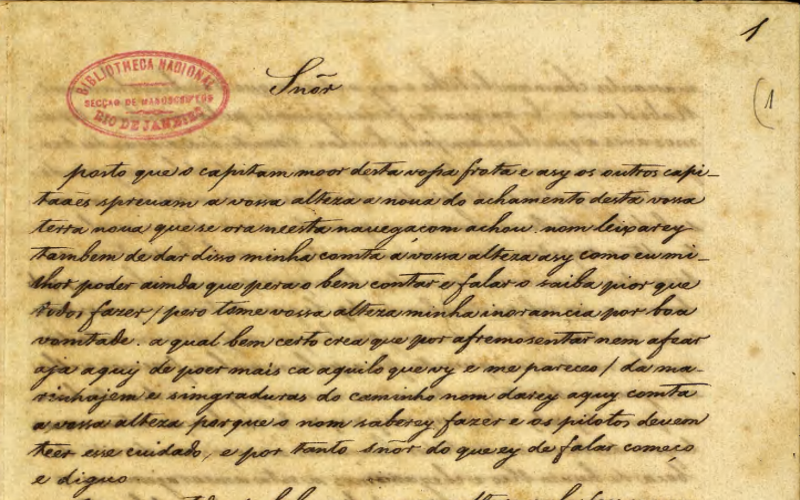 1
BIBLIOTHECA NACIONAL
SECÇÃO DE MANUSCRIPTOS
RIO DE JANEIRO
Sñor
(1
posto que o capitam moor desta vossa frota e asy os outros capi-
taães sprevam a vossa alteza a nova do achamento desta vossa
terra nova que se ora neesta navegaçom achou. nom leixarey
tambem de dar disso minha comta a vossa alteza asy como eu mi-
lhor poder aimda que pera o bem contar e falar o saiba pior que
todos fazer / pero tome vossa alteza minha inoramcia por boa
vomtade. a qual bem certo crea que por afremosentar nem afear
aja aquy de poer mais ca aquilo que vy e me pareceo / da ma-
rinhajem e simgraduras do caminho nom darey aquy comta
a vossa alteza porque o nom saberey fazer e os pilotos devem
teer esse cuidado, e por tanto sñor do que ey de falar começo
e diguo.